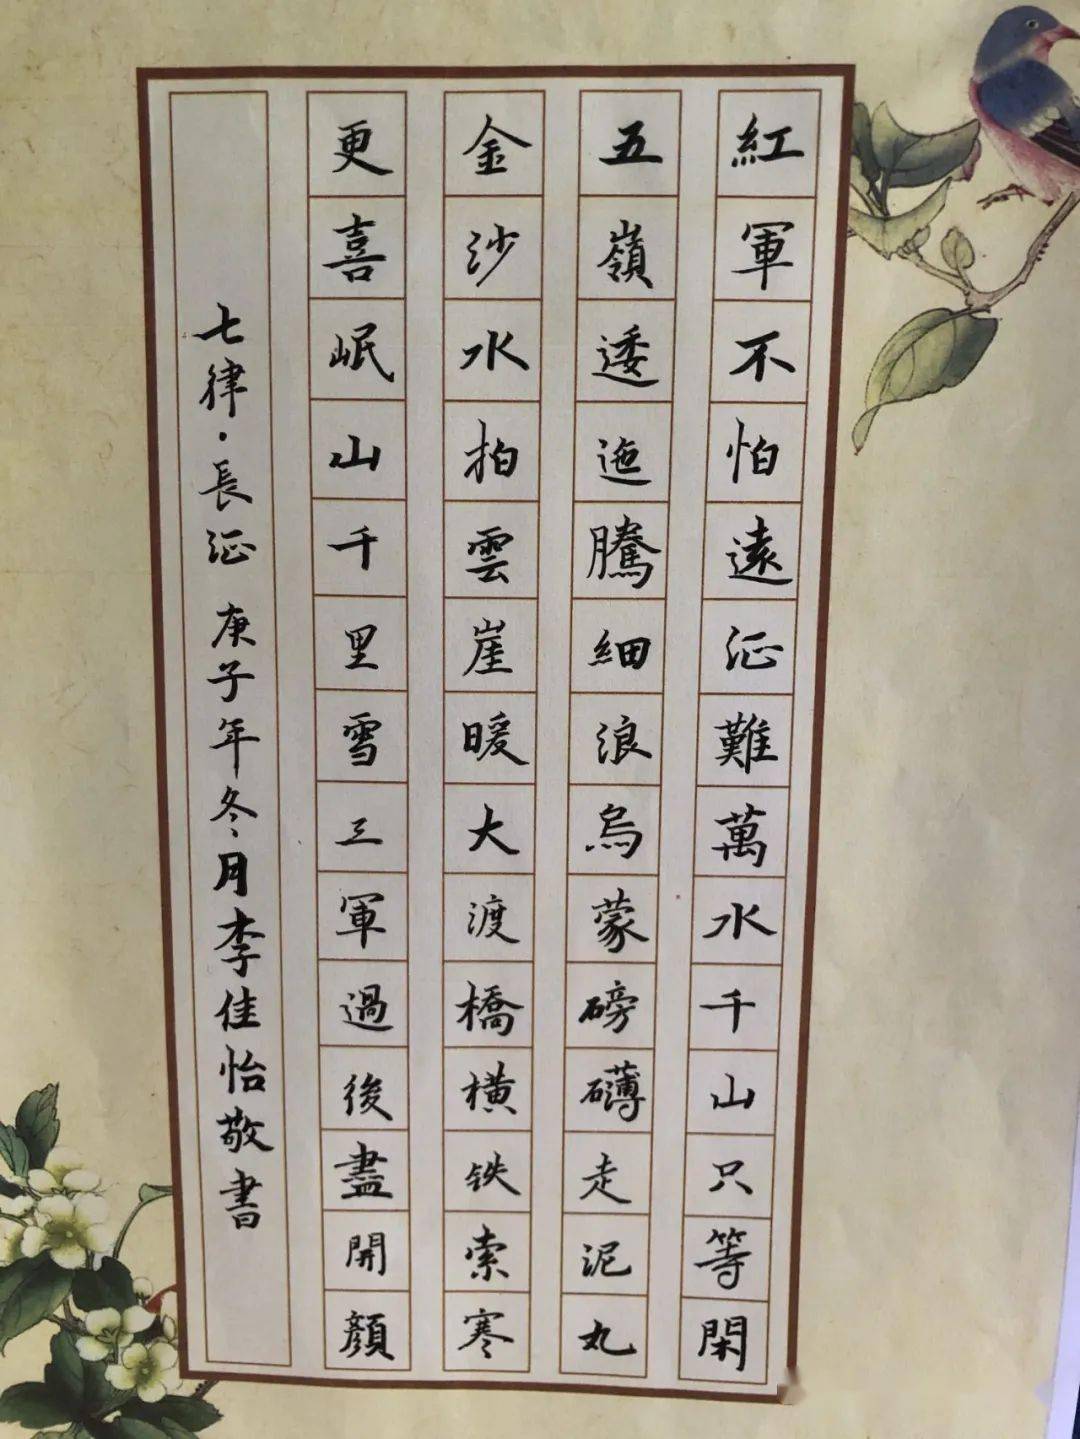 紅軍不怕遠征難萬水千山只等閑
五嶺逶迤騰細浪烏蒙磅礴走泥丸
金沙水拍雲崖暖大渡橋橫铁索寒
更喜岷山千里雪三軍過後盡開顔
七律·長征 庚子年冬月李佳怡敬書